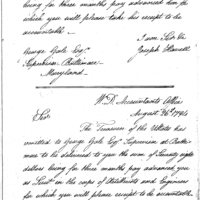 being for three months pay advanced him for
which you will please take his receipt to be
accountable.
I am Sir &c
Joseph Howell
George Gale Esqr
Supervisor Baltimore
Maryland.
W.D. Accountants Office
August 26th 1794
Sir
The Treasurer of the UStates has
remitted to George Gale Esqr Supervisor at Balti-
more to be delivered to you the sum of Seventy eight
dollars being for three months pay advanced you
as Lieut in the corps of Artillerists and Engineers
for which you will please receipt to be accountable